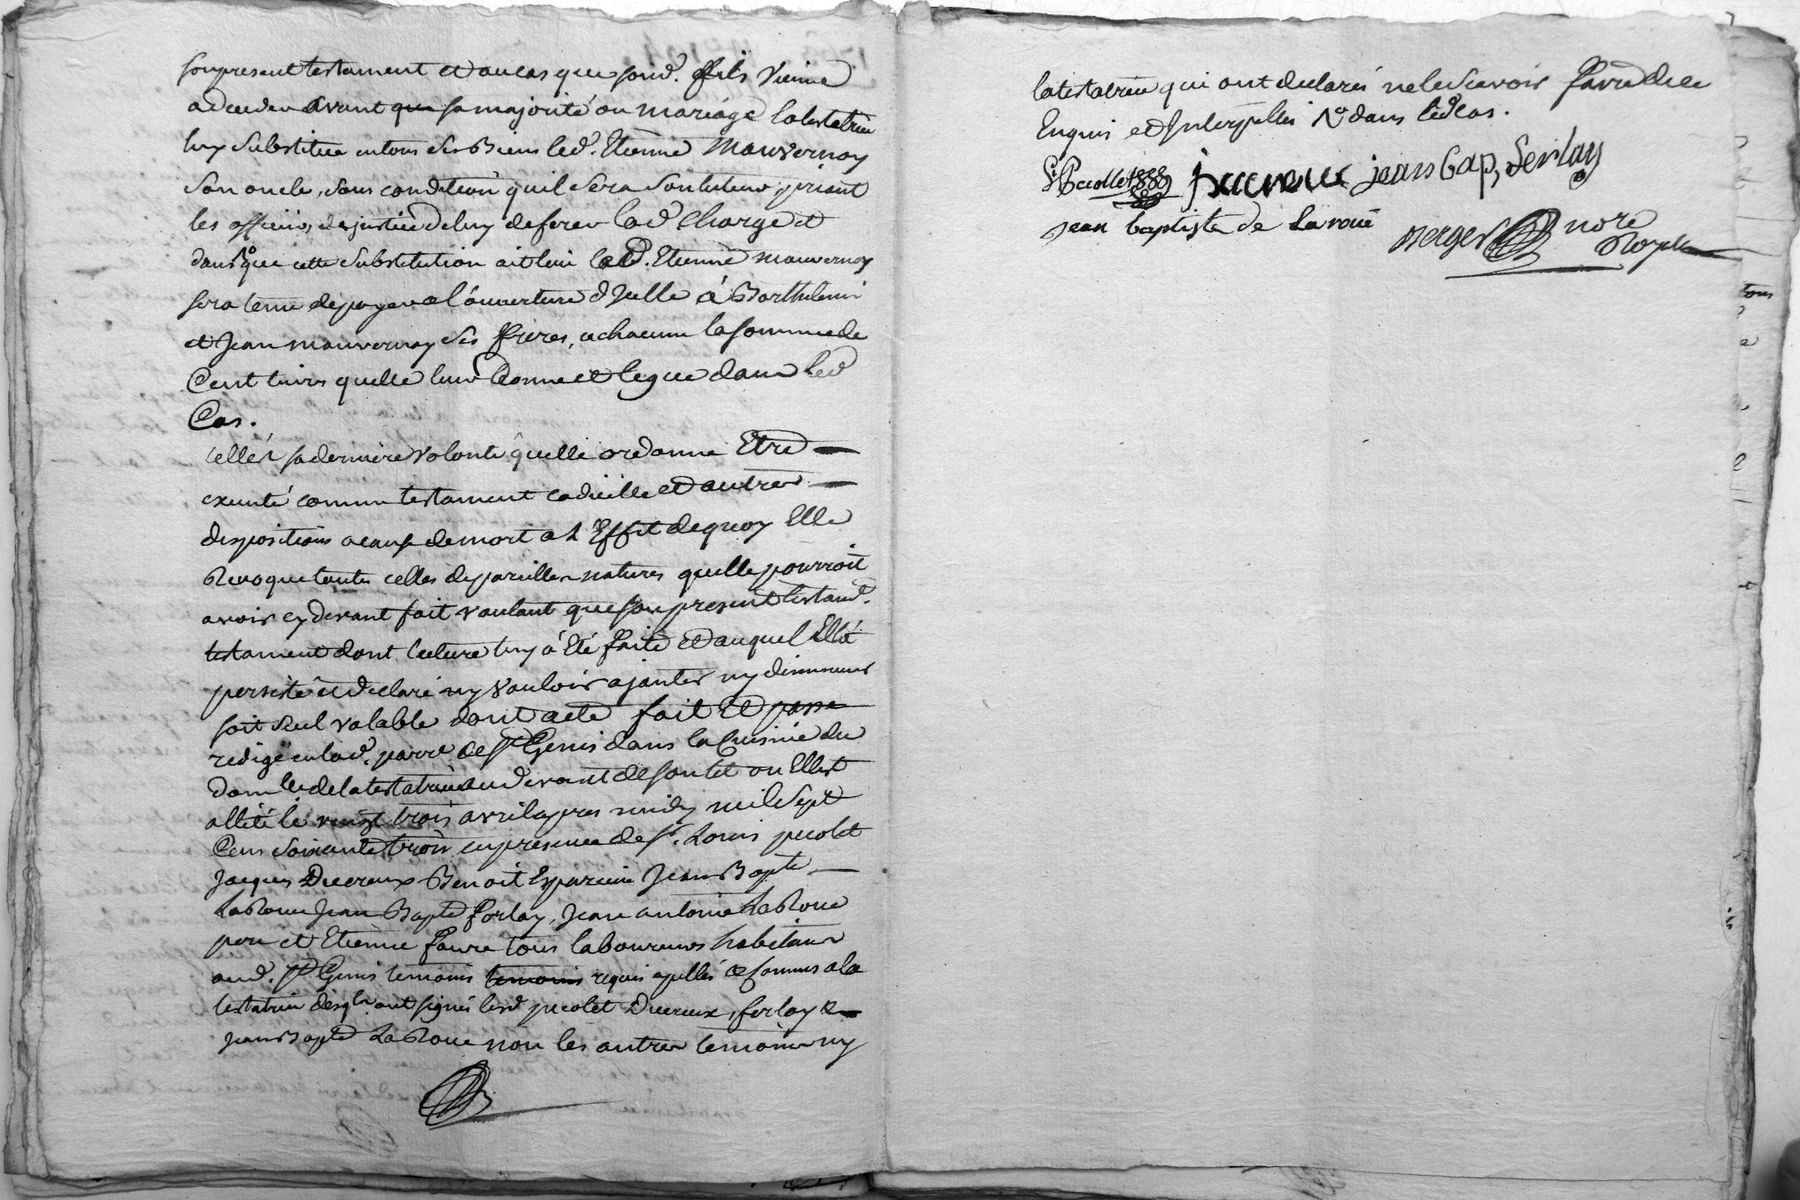 son present testament et au cas que sond. fils vienne
a deceder avant que sa majorité ou mariage la testatrice
luy substitue en tous ses Biens led. Etienne Mauvernay
son oncle, sous condition quil sera son tuteur priant
les officiers de justice de luy deferer lad Charge et
dans que cette substitution ait lieu led. Etienne mauvernay
sera tenu de payer a l'ouverture d'jcelle à Barthelemi
et Jean mauvernay ses freres, a chacun la somme de
Cent livres quelle leur donne et legue dans led
Cas.
telle sa derniere volonté quelle ordonne Etre
executé comme testament codicille et autres
dispositions a cause de mort a L'Effet de quoy Elle
Revoque toutes celles de pareilles natures quelle pourroit
avoir cy devant fait voulant que son present testamt.
testament dont lecture luy à été faite et auquel Elle à
persisté et declaré ny vouloir ajouter ny diminuer
soit seul valable dont acte fait et passé
redigé en lad. parre. de st Genis dans la Cuisine du
domlle de la testatrice au devant de son lit ou Ellest
allité le vingt trois avril apres midy mil Sept
Cens soixante trois en presence de sr. Louis pecolet
Jacques Ducreux Benoit Jean Bapte
LaRoue Jean Bapte forlay, Jean antoine LaRoue
pere et Etienne faure tous laboureurs habitans
aud. st Genis temoins temoins requis apellés et connus a la
testatrice desqls. ont signés lesd pecolet Ducreux, forlay &
Jean Bapte LaRoue non les autres temoins ny
la testatrice qui ont declarés ne le scavoir
Enquis et Interpellés dans led cas.
Ducreux jean bap, ferlay
jean baptiste de Laroüe
Berger nore
Royal